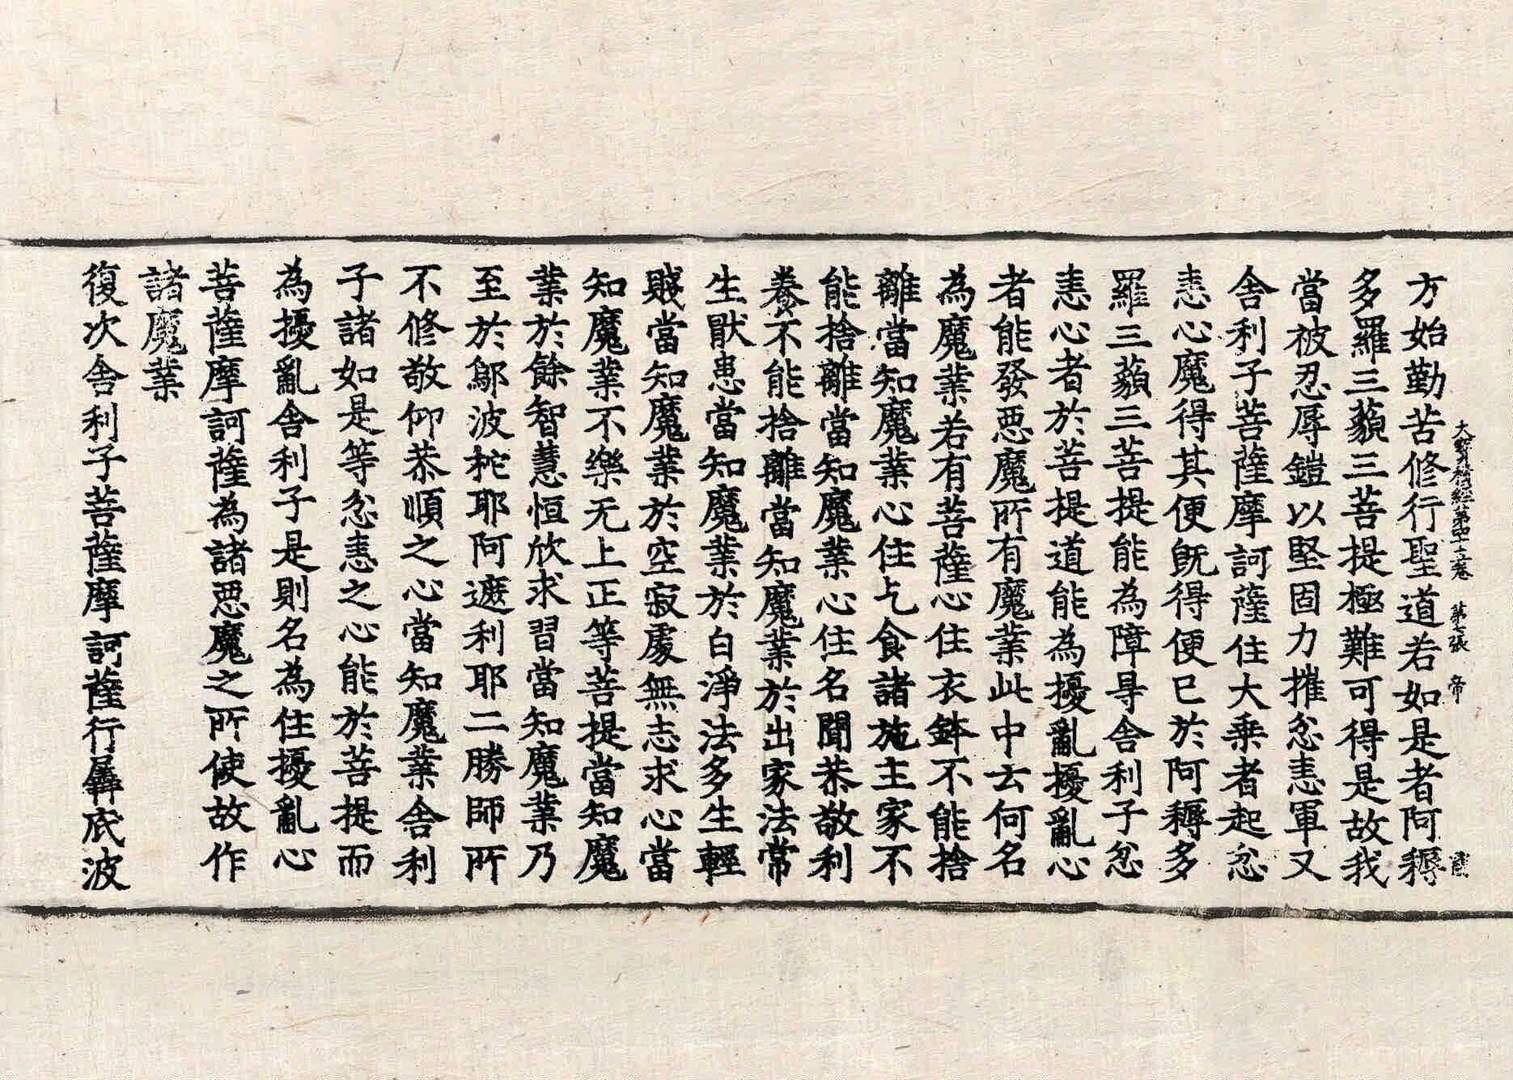 大寶積經第四十三卷　第七張　帝
方始勤苦修行聖道若如是者阿耨
多羅三藐三菩提極難可得是故我
當被忍辱鎧以堅固力摧忿恚軍又
舍利子菩薩摩訶薩住大乘者起忿
恚心魔得其便旣得便已於阿耨多
羅三藐三菩提能為障㝵舍利子忿
恚心者於菩提道能為擾亂擾亂心
者能發惡魔所有魔業此中云何名
為魔業若有菩薩心住衣鉢不能捨
離當知魔業心住乞食諸施主家不
能捨離當知魔業心住名聞恭敬利
養不能捨離當知魔業於出家法常
生猒患當知魔業於白淨法多生輕
賤當知魔業於空寂處無志求心當
知魔業不樂无上正等菩提當知魔
業於餘智慧恒欣求習當知魔業乃
至於鄔波柁耶阿遮利耶二勝師所
不修敬仰恭順之心當知魔業舍利
子諸如是等忿恚之心能於菩提而
為擾亂舍利子是則名為住擾亂心
菩薩摩訶薩為諸惡魔之所使故作
諸魔業
復次舍利子菩薩摩訶薩行羼底波